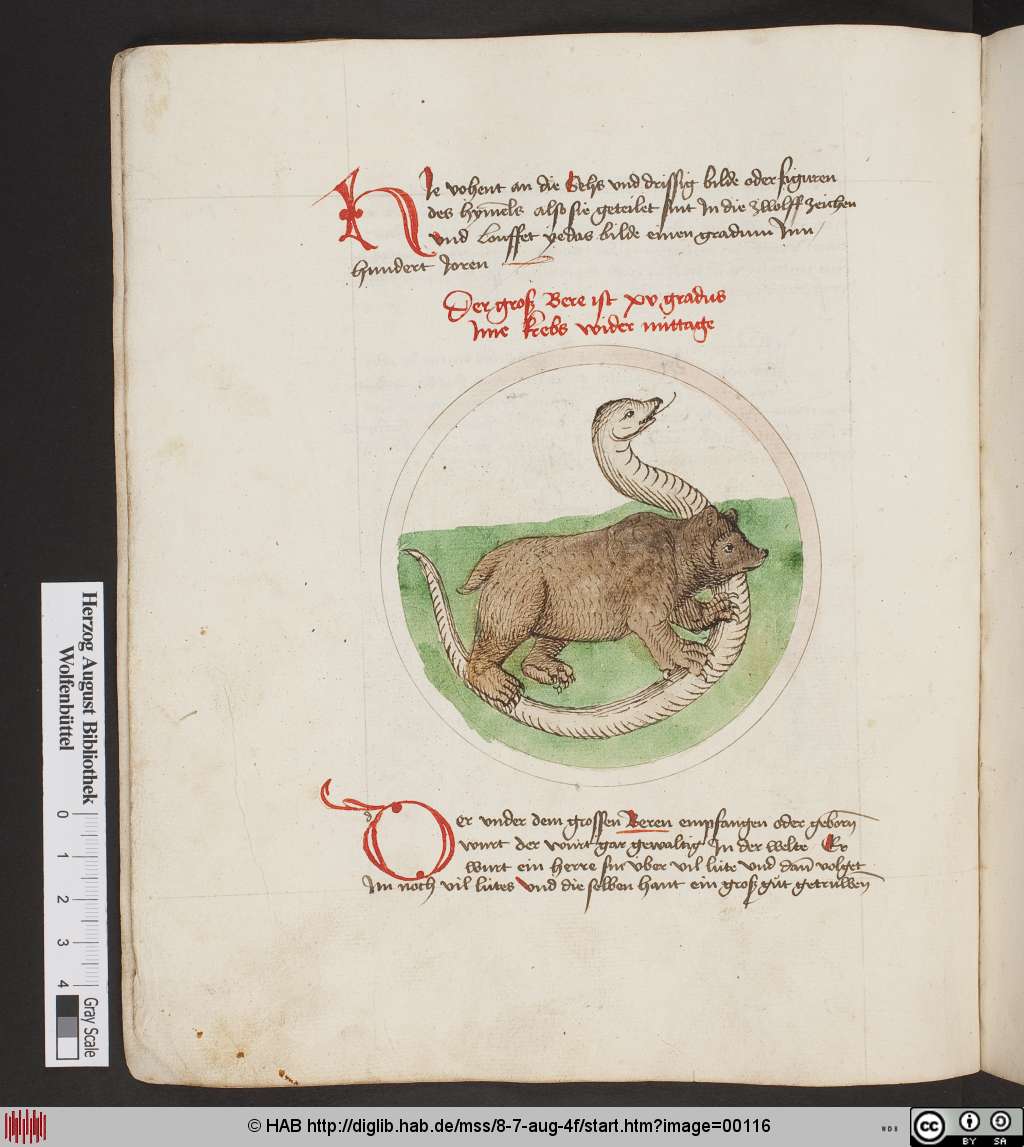 Hie vohent an die Sehs vnd drissig bilde oder figuren
des hymels also sie geteilet sint In die zwolff zeichen
vnd louffet yedas bilde einen gradum Inn
hundert Joren
Der groß Bere ist xv gradus
Ime krebs wider mittage
Der vnder dem grossen Beren empfangen oder geborn
wurt der wurt gar gewaltig In der welte Er
wurt ein herre sin vber vil lüte vnd dan volget
Im noch vil lütes vnd die selben hant ein groß güt getruwen
Herzog August Bibliothek
Wolfenbüttel
0 1 2 3 4
Gray Scale
© HAB http://diglib.hab.de/mss/8-7-aug-4f/start.htm?image=00116
WDB
cc BY SA